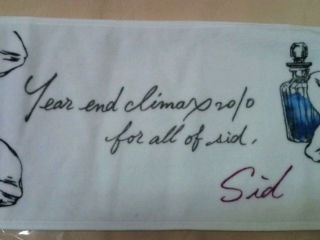 Year end climax 2010
for all of sid.
Sid